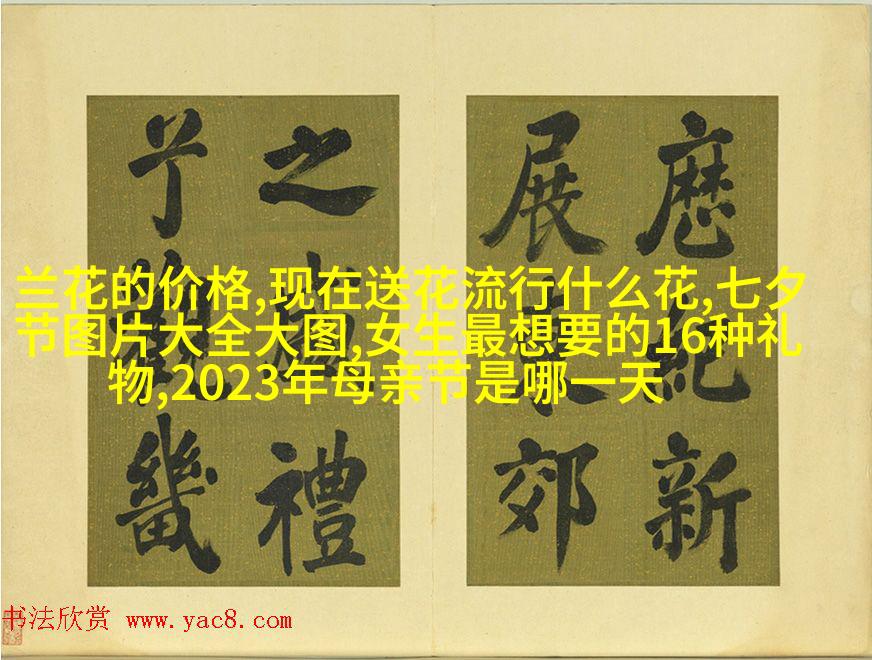 兰花的价格,现在送花流行什么花,七夕
节图片大全大图,女生最想要的16种礼
物,2023年母亲节是哪一天
歷紀新
展郊
之禮
觀畿
书法欣赏 www.yac8.com